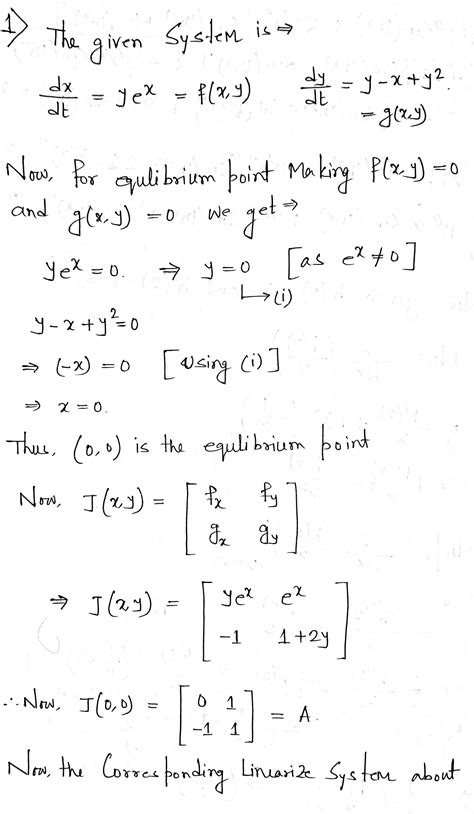 1) The given System is ⇒
dx/dt = ye^x = f(x,y)    dy/dt = y-x+y².
= g(x,y)
Now, for equlibrium point Making f(x,y)=0
and g(x,y) = 0 we get ⇒
ye^x = 0. ⇒ y = 0 [as e^x ≠ 0]
↳ (i)
y-x+y²=0
⇒ (-x) = 0 [Using (i)]
⇒ x = 0.
Thus, (0,0) is the equlibrium point
Now, J(x,y) = [ fx fy
gx gy ]
⇒ J(x,y) = [ ye^x e^x
-1 1+2y ]
∴ Now, J(0,0) = [ 0 1
-1 1 ] = A.
Now, the Corresponding Linearize System about